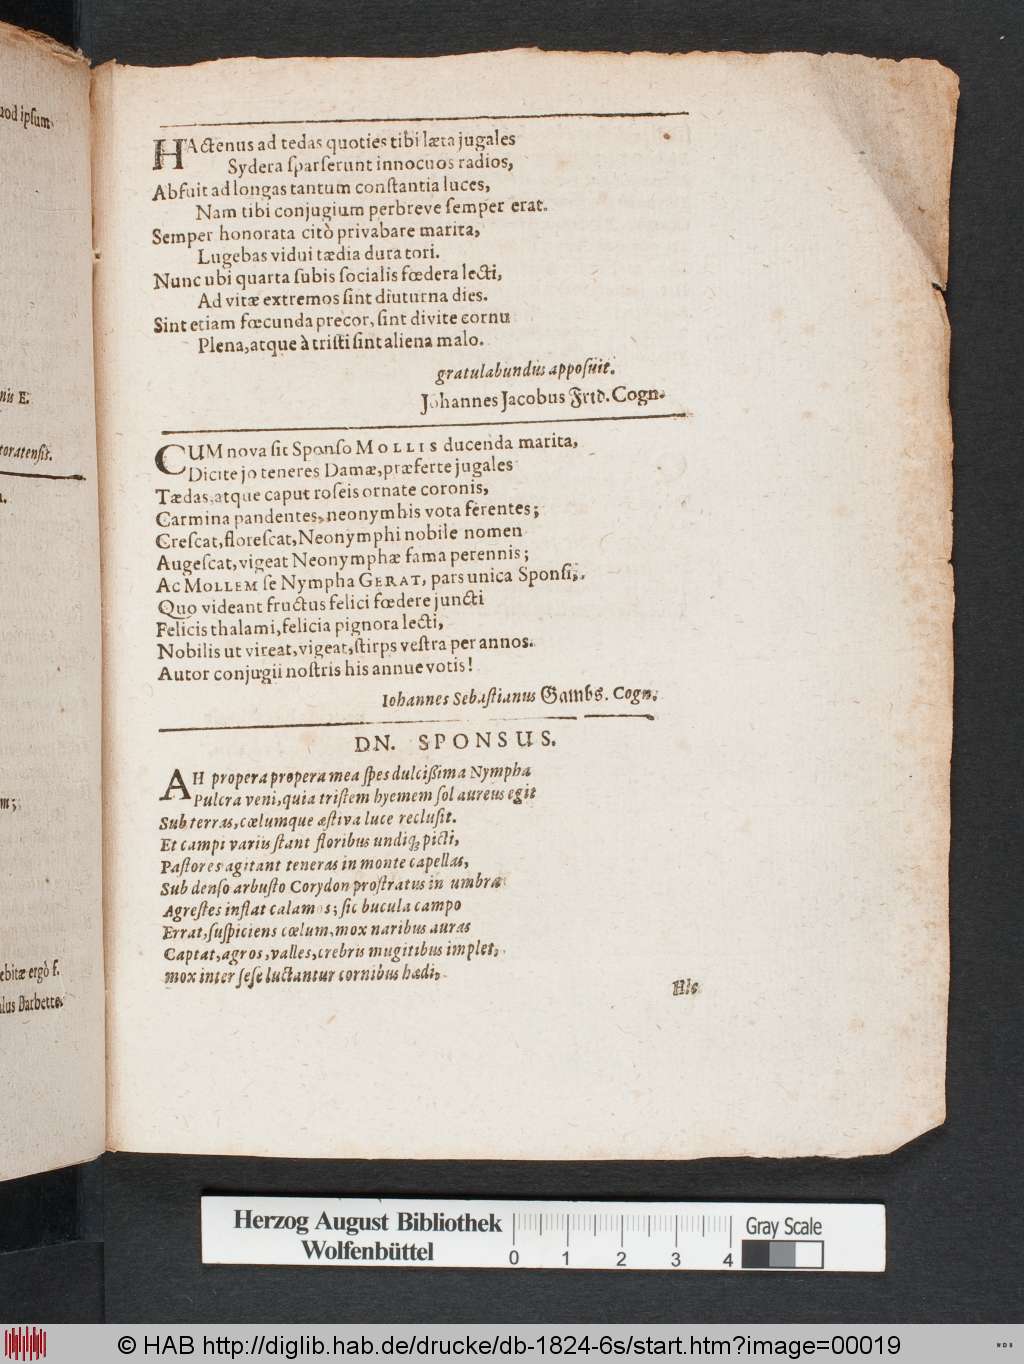 uod ipsum
nis E.
toratensis.
ebitæ ergò s.
ulus Darbette.
HActenus ad tedas quoties tibi læta jugales
Sydera sparserunt innocuos radios,
Abfuit ad longas tantum constantia luces,
Nam tibi conjugium perbreve semper erat.
Semper honorata citò privabare marita,
Lugebas vidui tædia dura tori.
Nunc ubi quarta subis socialis fœdera lecti,
Ad vitæ extremos sint diuturna dies.
Sint etiam fœcunda precor, sint divite cornu
Plena, atque à tristi sint aliena malo.
gratulabundus apposuit.
Johannes Jacobus Frid. Cogn.
CUM nova sit Sponso MOLLIS ducenda marita,
Dicite jo teneres Damæ, præferte jugales
Tædas, atque caput roseis ornate coronis,
Carmina pandentes, neonymhis vota ferentes;
Crescat, florescat, Neonymphi nobile nomen
Augescat, vigeat Neonymphæ fama perennis;
Ac MOLLEM se Nympha GERAT, pars unica Sponsi,.
Quo videant fructus felici fœdere juncti
Felicis thalami, felicia pignora lecti,
Nobilis ut vireat, vigeat, stirps vestra per annos.
Autor conjugii nostris his annue votis!
Iohannes Sebastianus Gambs. Cogn.
DN. SPONSUS.
AH propera propera mea spes dulcißima Nympha
Pulcra veni, quia tristem hyemem sol aureus egit
Sub terras, cœlumque æstiva luce reclusit.
Et campi variis stant floribus undiq; picti,
Pastores agitant teneras in monte capellas,
Sub denso arbusto Corydon prostratus in umbra
Agrestes inflat calamos; sic bucula campo
Errat, suspiciens cœlum, mox naribus auras
Captat, agros, valles, crebris mugitibus implet,
mox inter sese luctantur cornibus hædi,
His
Herzog August Bibliothek
Wolfenbüttel
0 1 2 3 4
Gray Scale
© HAB http://diglib.hab.de/drucke/db-1824-6s/start.htm?image=00019